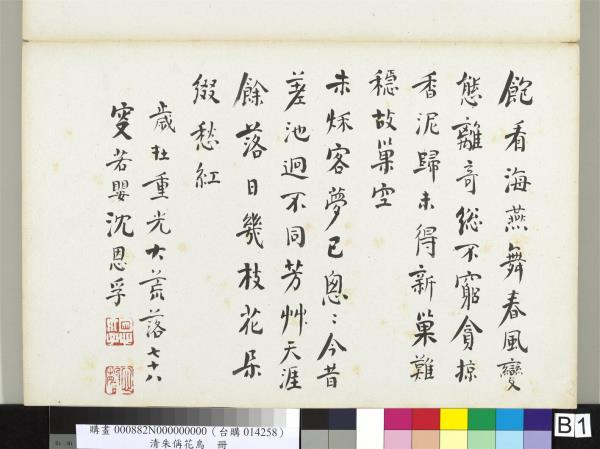 飽看海燕舞春風變
態離奇總不窮貪掠
香泥歸未得新巢難
穩故巢空
未穌客夢已匆〻今昔
差池迥不同芳艸天涯
餘落日幾枝花朵
綴愁紅
歲在重光大荒落七十八
叟若嬰沈恩孚
購畫 000882N000000000 (台購 014258)
清朱偁花鳥 冊
B 1